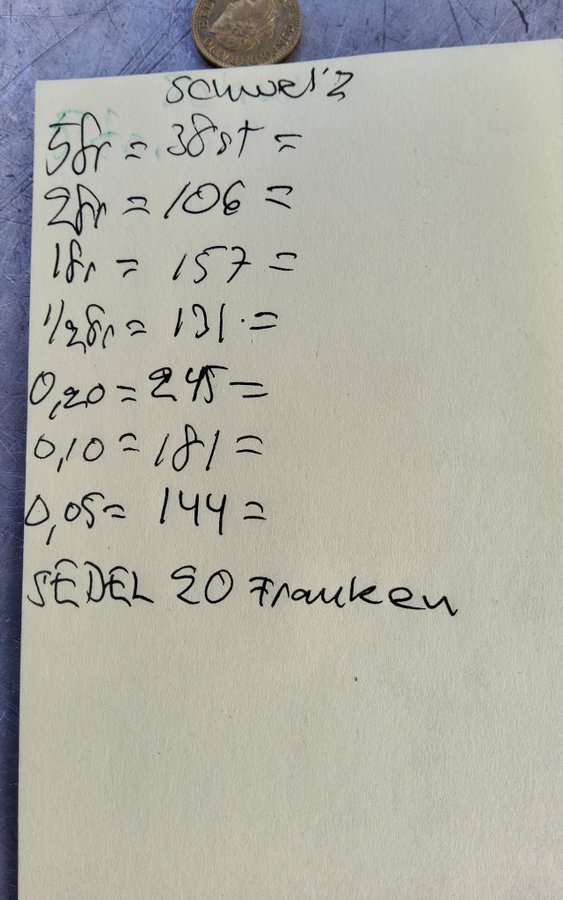 Schweiz
5fr = 38st =
2fr = 106 =
1fr = 157 =
1/2fr = 131 =
0,20 = 245 =
0,10 = 181 =
0,05 = 144 =
SEDEL 20 Franken